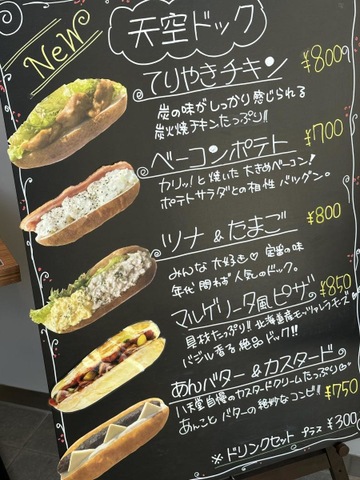 NeW
天空ドック
てりやきチキン ¥800
炭の味がしっかり感じられる
炭火焼チキンたっぷり!!
ベーコンポテト ¥700
カリッ!と焼いた大きめベーコン!
ポテトサラダとの相性 バツグン。
ツナ & たまご ¥800
みんな大好き♡ 定番の味
年代問わず人気のドッグ。
マルゲリータ風ピザ ¥850
具材たっぷり!! 北海道産モッツァレラチーズの
バジル香る絶品ドック!!
あんバター & カスタード ¥750
八天堂自慢のカスタードクリームたっぷり
あんことバターの絶妙なコンビ!!
※ドリンクセット プラス ¥300